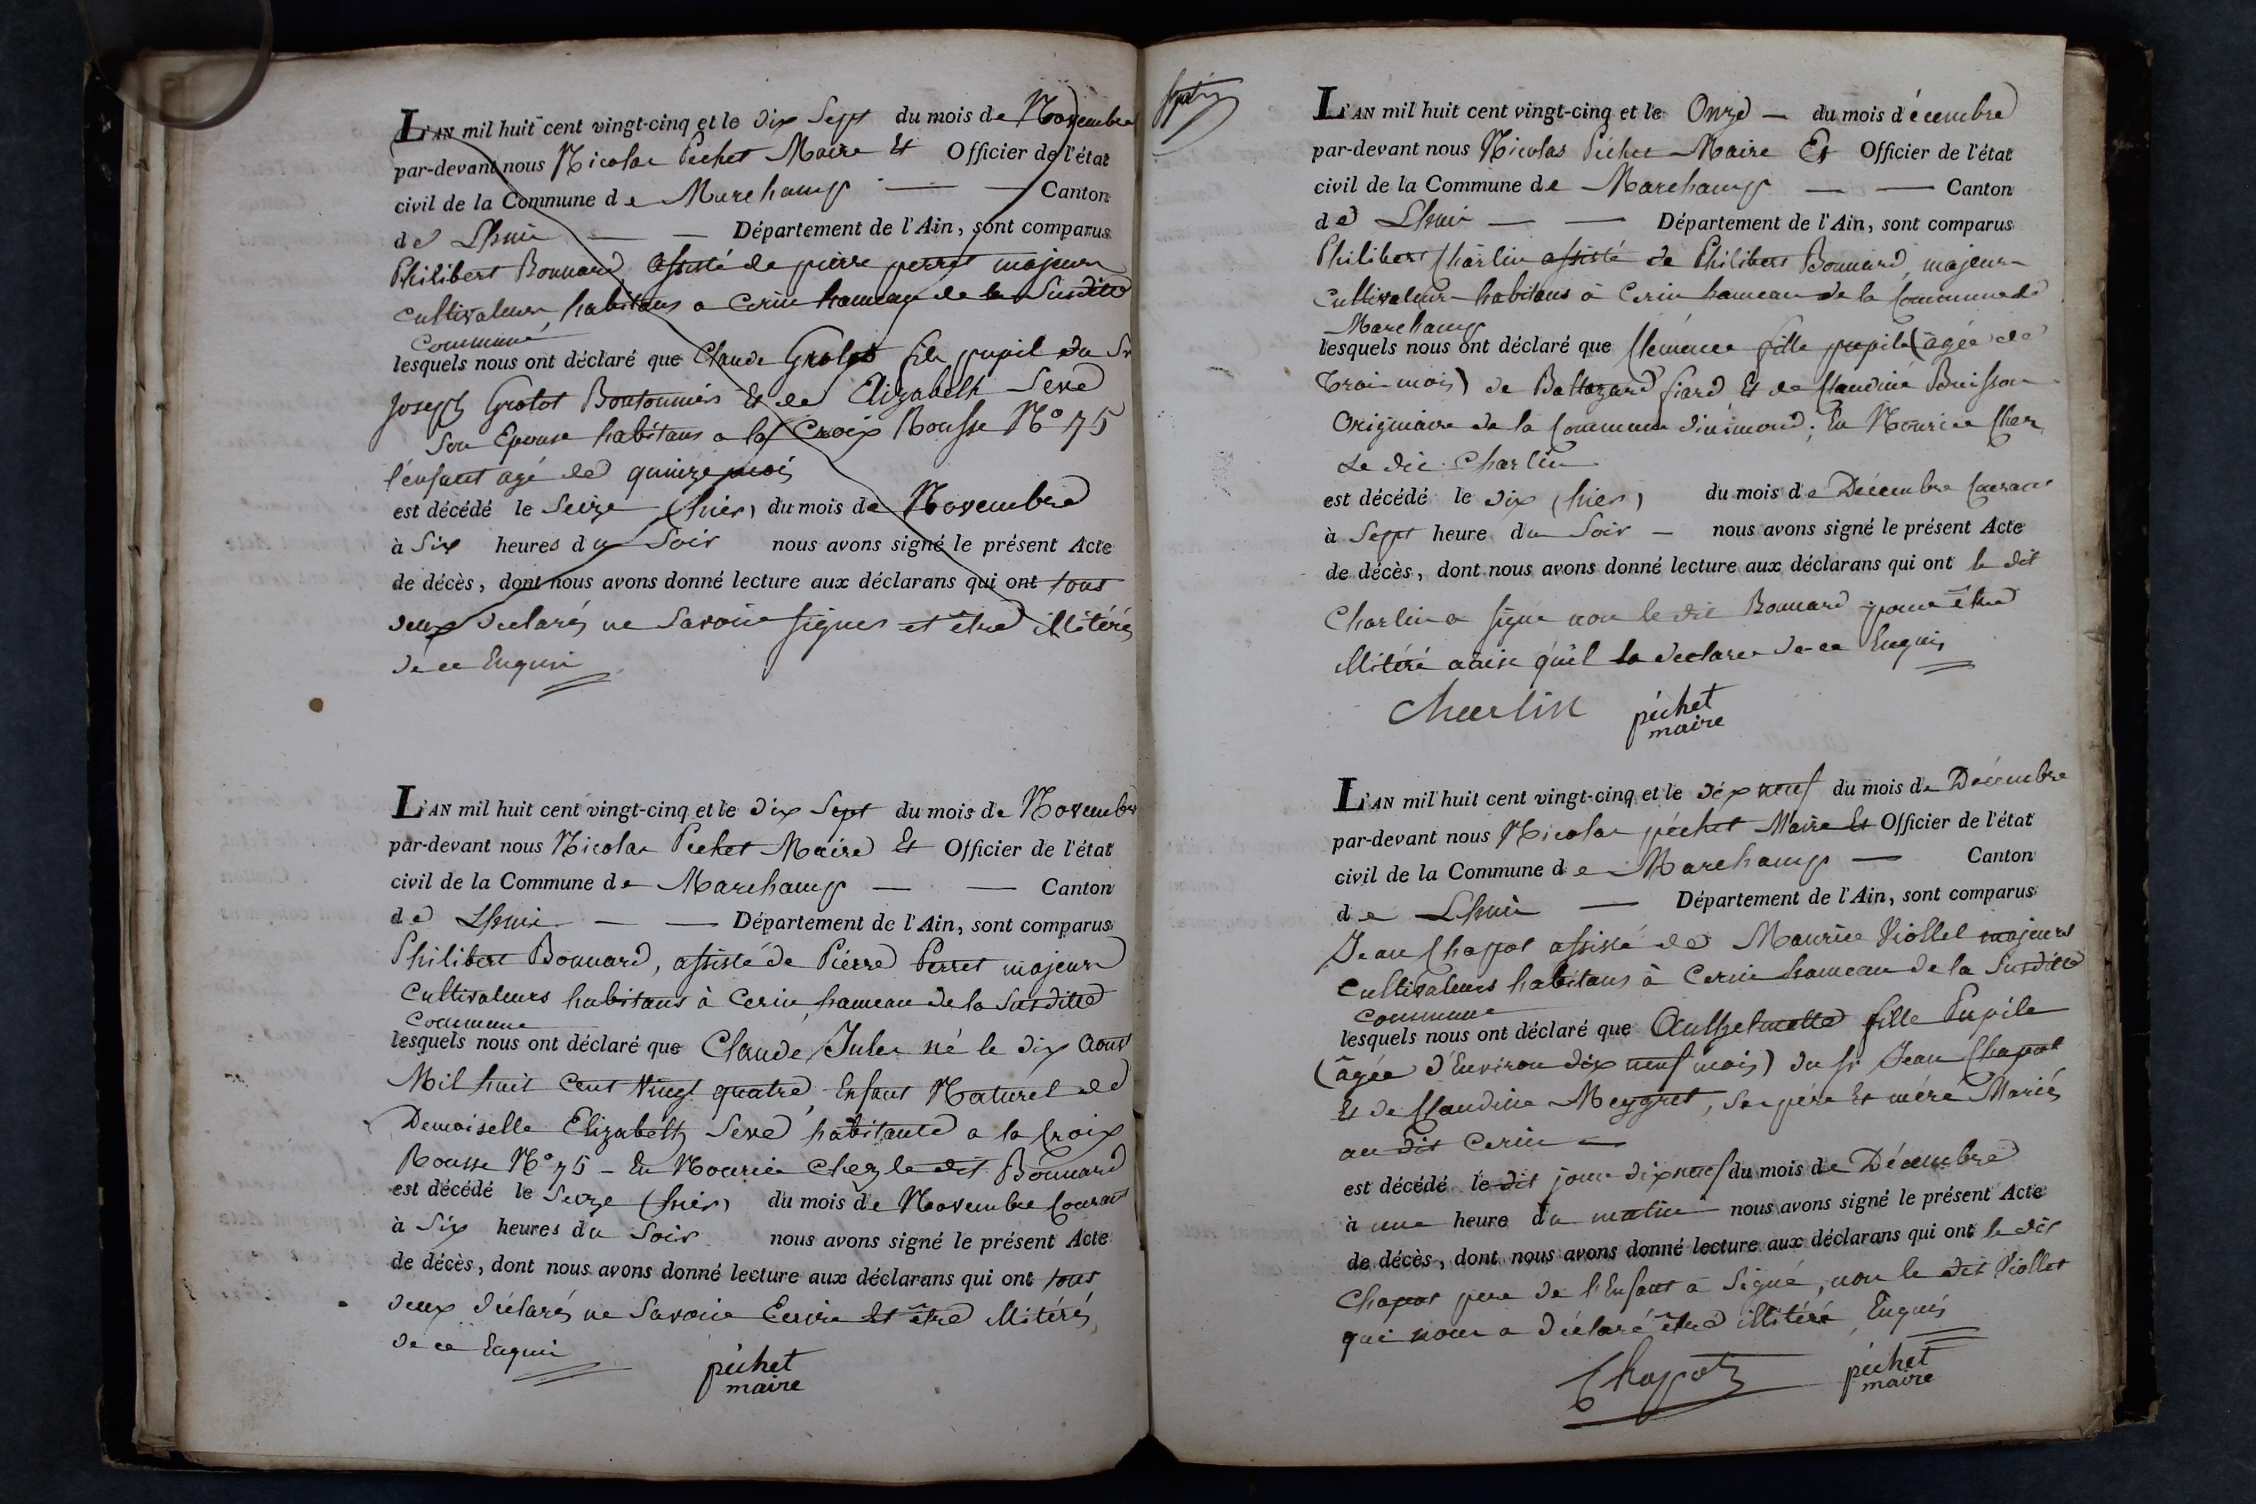 L'AN mil huit cent vingt-cinq et le dix Sept du mois de Novembre
par-devant nous Nicolas Péchet Maire Et Officier de l'état
civil de la Commune de Marchamp — — Canton
de Lhuis — — Département de l'Ain, sont comparus
Philibert Bonnard assisté de pierre perret majeurs
Cultivateurs, habitans a Cerin hameau de la Susditte
Commune
lesquels nous ont déclaré que Claude Grolot fils pupil du Sr
Joseph Grolot Boutonniers Et de Elizabeth Seve
Son Epouse habitans a la Croix Rousse N° 75
l'enfant agé de quinze mois
est décédé le Seize (hier) du mois de Novembre
à Six heures du Soir nous avons signé le présent Acte
de décès, dont nous avons donné lecture aux déclarans qui ont tous
deux déclarés ne Savoir signer et être illitérés
de ce Enquis
L'AN mil huit cent vingt-cinq et le dix Sept du mois de Novembre
par-devant nous Nicolas Pechet Maire Et Officier de l'état
civil de la Commune de Marchamp — — Canton
de Lhuis — — Département de l'Ain, sont comparus
Philibert Bonnard, assisté de Pierre Perret majeurs
Cultivateurs habitans à Cerin, hameau de la Susditte
Commune
lesquels nous ont déclaré que Claude Jules né le dix Aout
Mil huit Cent Vingt quatre, Enfant Naturel de
Demoiselle Elizabeth Seve habitante a la Croix
Rousse N° 75 — En Nourice Chez le dit Bonnard
est décédé le Seize (hier) du mois de Novembre Courant
à Six heures du Soir nous avons signé le présent Acte
de décès, dont nous avons donné lecture aux déclarans qui ont tous
deux déclarés ne Savoir Ecrire Et être illitérés,
de ce Enquis
péchet
maire
L'AN mil huit cent vingt-cinq et le Onze — du mois décembre
par-devant nous Nicolas Péchet Maire Et Officier de l'état
civil de la Commune de Marchamp — — Canton
de Lhuis — — Département de l'Ain, sont comparus
Philibert Charlin assisté de Philibert Bonnard, majeurs
Cultivateurs habitans à Cerin hameau de la Commune de
Marchamp
lesquels nous ont déclaré que Clémence fille pupile (âgée de
Trois mois) de Baltazard fiard Et de Claudine Buisson
Originaire de la Commune d'inimond; En Nourice Chez
Le dit Charlin
est décédé le dix (hier) du mois de Décembre Courant
à Sept heure du Soir — nous avons signé le présent Acte
de décès, dont nous avons donné lecture aux déclarans qui ont le dit
Charlin a signé non le dit Bonnard pour être
illitéré ainsi qu'il la declarer de ce Enquis
Charlin péchet
maire
L'AN mil huit cent vingt-cinq et le dix neuf du mois de Décembre
par-devant nous Nicolas péchet Maire Et Officier de l'état
civil de la Commune de Marchamp — Canton
de Lhuis — Département de l'Ain, sont comparus
Jean Chapot assisté de Maurice Viollet majeurs
Cultivateurs habitans à Cerin hameau de la Susditte
Commune
lesquels nous ont déclaré que Anthelmette fille Pupile
(âgée d'Environ dix neuf mois) du Sr Jean Chapot
Et de Claudine Meygret, Ses père Et mére Mariés
au dit Cerin —
est décédé le dit jour dix neuf du mois de Décembre
à une heure du matin nous avons signé le présent Acte
de décès, dont nous avons donné lecture aux déclarans qui ont le dit
Chapot pere de l'Enfant a Signé, non le dit Viollet
qui nous a déclaré être illitéré Enquis
Chapot péchet
maire